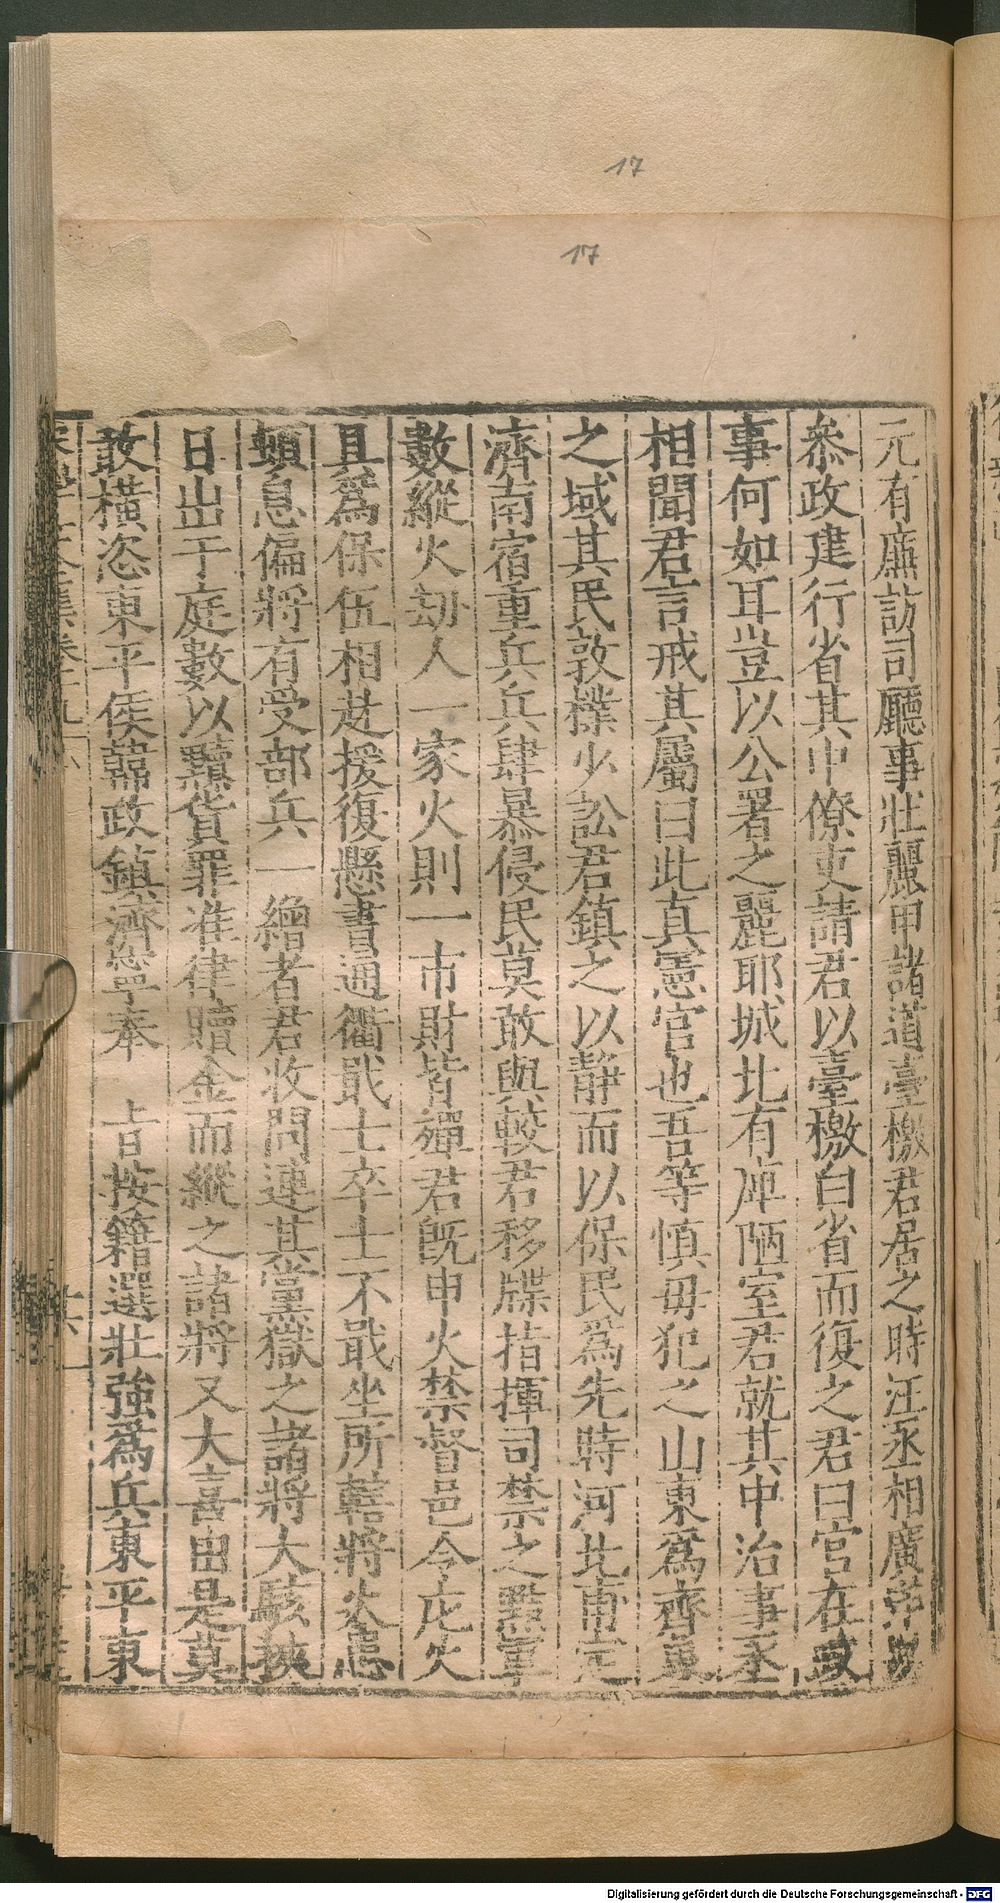 17
17
元有廉訪司廳事壯麗甲諸道臺檄君居之時汪丞相廣洋
叅政建行省其中僚吏請君以臺檄白省而復之君曰官在政
事何如耳豈以公署之麗耶城北有庳陋室君就其中治事丞
相聞君言戒其屬曰此真憲官也吾等慎毋犯之山東爲齊魯
之域其民敦樸少訟君鎮之以靜而以保民爲先時河北甫定
濟南宿重兵兵肆暴侵民莫敢與較君移牒指揮司禁之黠軍
數縱火刼人一家火則一市財皆殫君既申火禁督邑令庀火
具爲保伍相赴援復懸書通衢戢士卒士不戢坐所轄將火患
頓息偏將有受部兵一繒者君收問連其黨獄之諸將大駭挾
日出于庭數以黷貨罪准律贖金而縱之諸將又大喜由是莫
敢橫恣東平侯韓政鎮濟寧奉 上旨按籍選壯強爲兵東平東
Digitalisierung gefördert durch die Deutsche Forschungsgemeinschaft - DFG